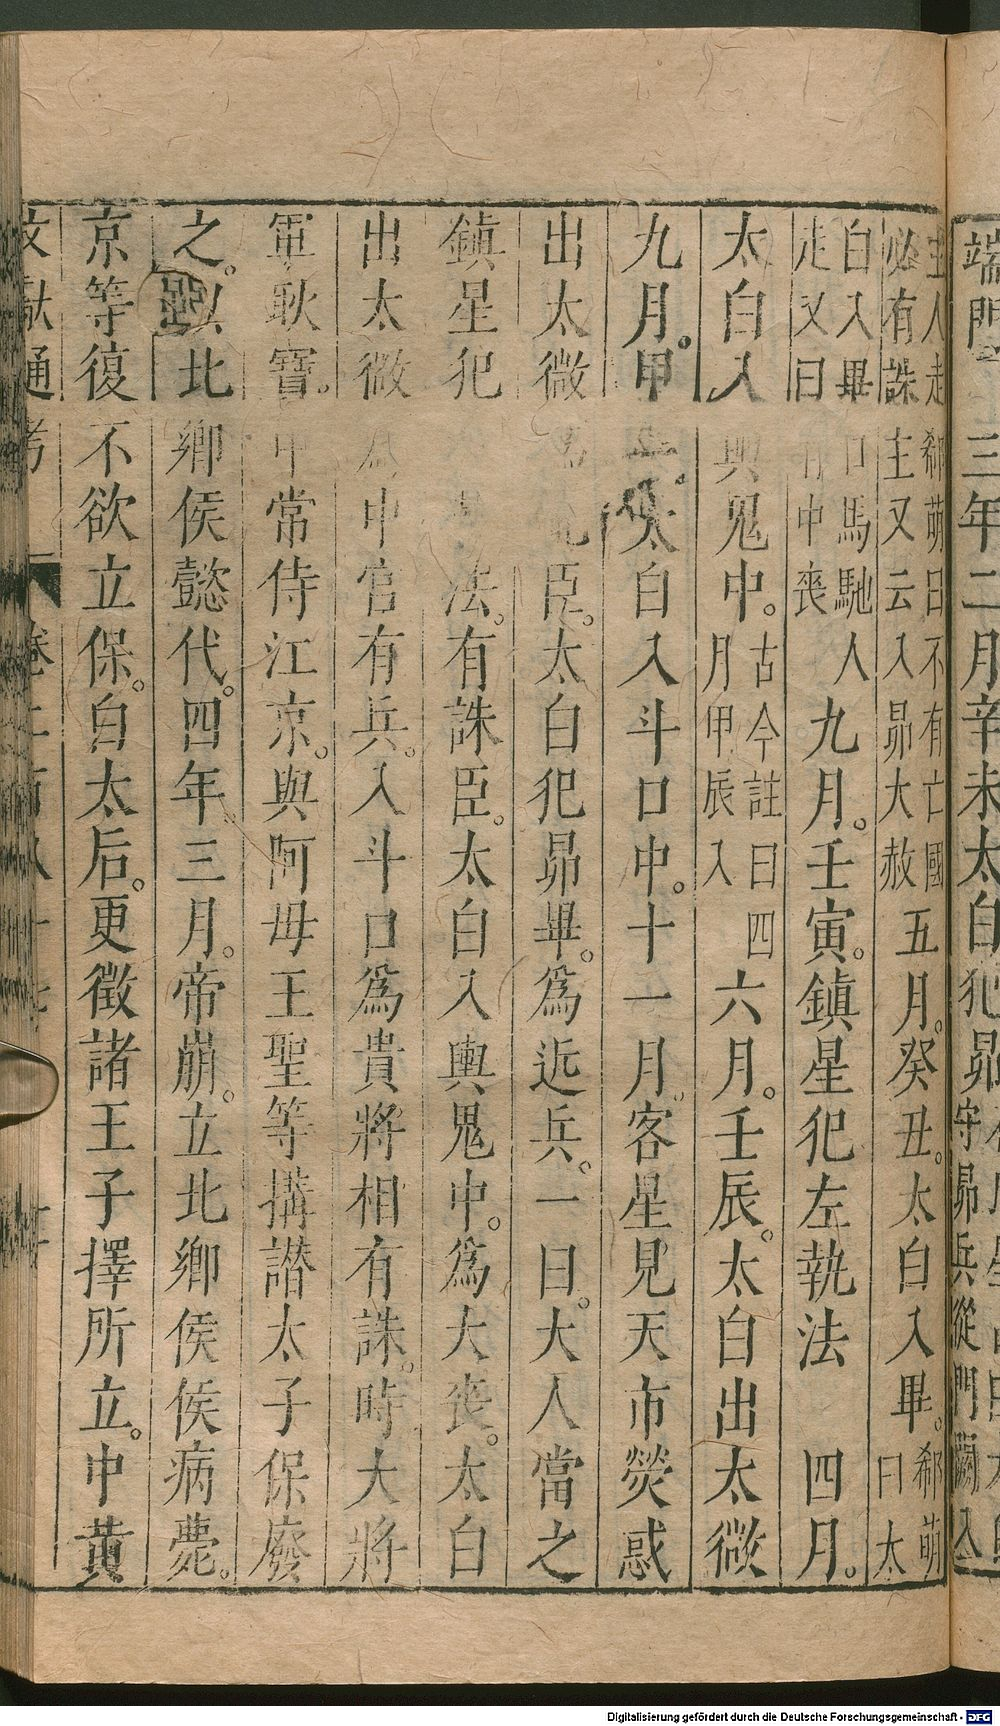 端門 三年二月辛未太白犯昴 守昴兵從門闕入
主人走 郗萌曰不有亡國
必有誅 主又云入昴大赦
五月癸丑。太白入畢。 郗萌
曰太
白入畢口馬馳人
走又曰 中喪
九月。壬寅。鎮星犯左執法 四月。
太白入輿鬼中。 古今註曰四
月甲辰入
六月。壬辰。太白出太微
九月。甲 太白入斗口中。十一月。客星見天市熒惑
出太微 臣。太白犯昴畢。為近兵。一曰。大人當之
鎮星犯 法。有誅臣。太白入輿鬼中。為大喪。太白
出太微為中宮有兵。入斗口為貴將相有誅。時大將
軍耿寶。中常侍江京。與阿母王聖等搆譖太子保廢
之。以北鄉侯懿代。四年三月。帝崩。立北鄉侯侯病薨。
京等復不欲立保。白太后。更徵諸王子擇所立。中黄
文獻通考 卷二百八十七
Digitalisierung gefördert durch die Deutsche Forschungsgemeinschaft - DFG